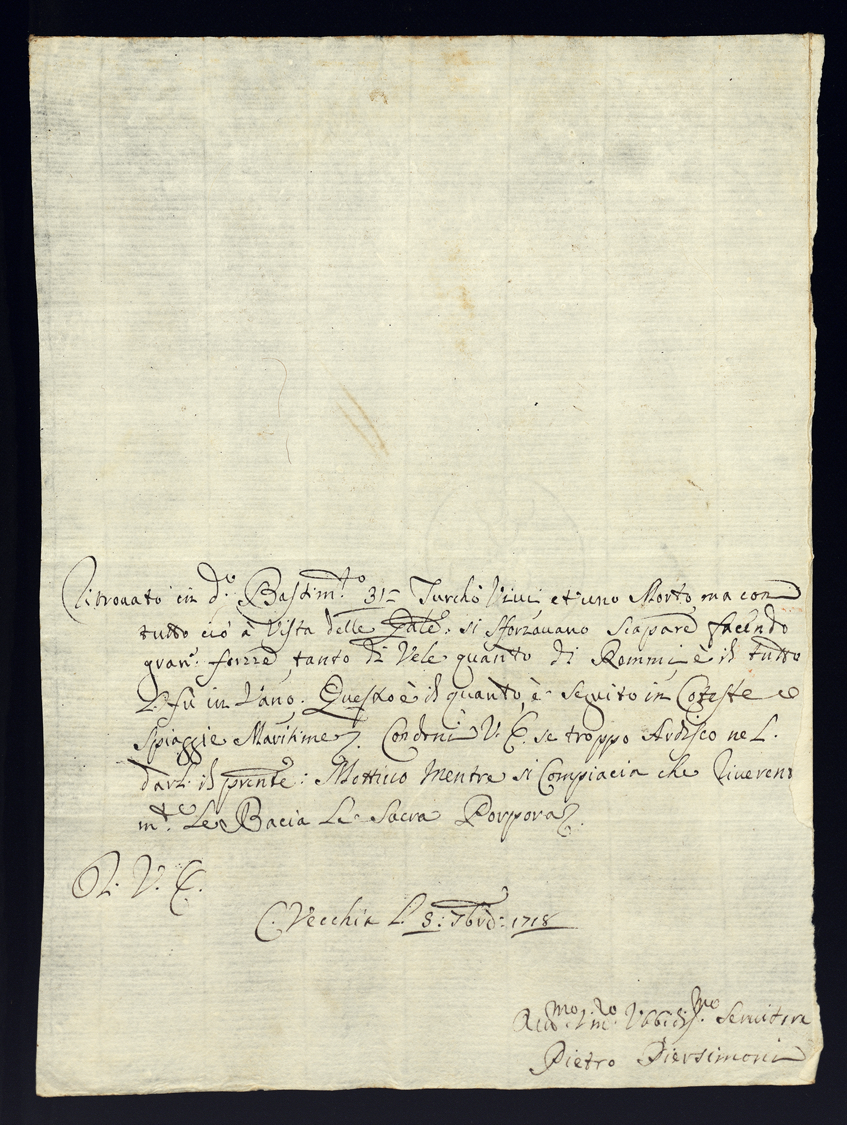 Ritrovato in d.º Bastim.to 31= Turchi Vivi et uno Morto, ma con
tutto ciò à Vista delle Gale: si sforzavano Scapare facendo
gran: forzze tanto di Vele quanto di Remmi, è il tutto
fù in Vano. Questo è il quanto è seguito in Coteste
Spiaggie Maritime. Condoni V. E. se troppo Ardisco nel
darl. il pñte: Mottivo Mentre si Compiacia che Riveren
m.te Le Bacia La Sacra Porpora
D. V. E.
C. Vecchia L. 8: 7bre: 1718
Vbbidi.mo Servitore
Pietro Piersimoni